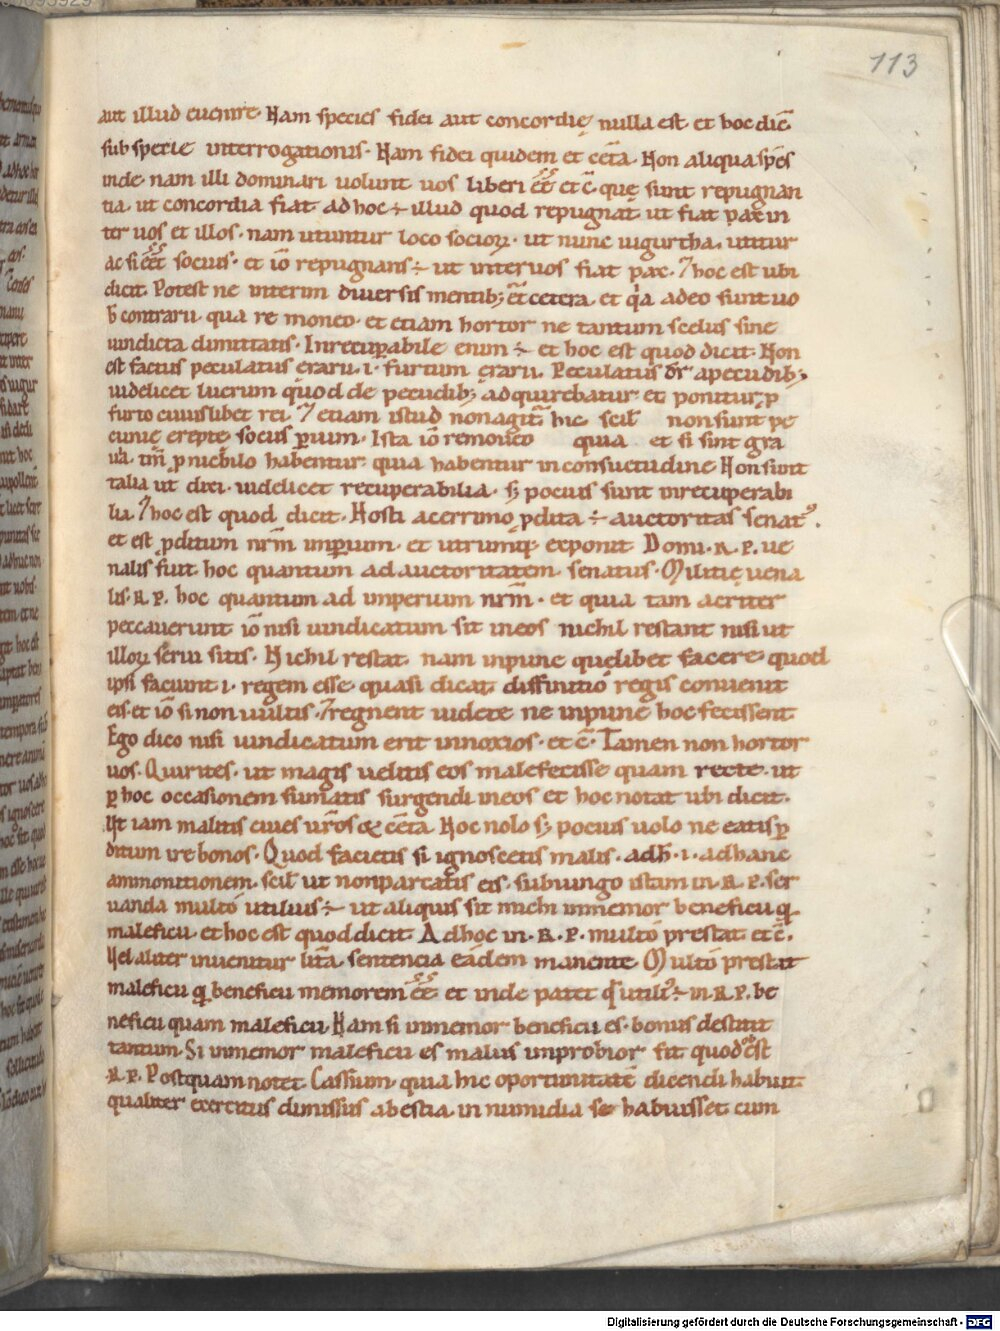 113
aut illud euenire. Nam species fidei aut concordię nulla est et hoc dic̄
sub specie interrogationis. Nam fidei quidem et cet̄a. Non aliqua sp̄es
inde nam illi dominari uolunt uos liberi ēe et c̄ quę sunt repugnan
tia. ut concordia fiat ad hoc ÷ illud quod repugnat ut fiat pax in
ter uos et illos. nam utuntur loco socioꝝ. ut nunc iugurtha. utitur
ac si ēet socius. et iō repugnans ÷ ut inter uos fiat pax. ⁊ hoc est ubi
dicit. Potest ne interim diuersis mentib; et cetera. et q̇a adeo sunt uo
b̄ contrarii. qua re moneo. et etiam hortor ne tantum scelus sine
uindicta dimittatis. Inrecuꝑabile enim ÷ et hoc est quod dicit. Non
est factus peculatus erarii. i. furtum ęrarii. Peculatus dr̄ a pecudib;
uidelicet lucrum quod de pecudib; adquirebatur et ponitur ꝓ
furto cuiuslibet rei. ⁊ etiam istud non agit̄ hic scil̄ non sunt pe
cunię erepte sociis ꝑ uim. Ista iō remoueo quia et si sint gra
uia. tm̄ ꝓ nichilo habentur. quia habentur in consuetudine Non sunt
talia ut dixi. uidelicet recuperabilia. s; pocius sunt inrecuperabi
lia. ⁊ hoc est quod dicit. Hosti acerrimo ꝓdita ÷ auctoritas senat⁹.
et est ꝓditum nr̄m imꝑium. et utrumq; exponit Domi. R. P. ue
nalis fuit. hoc quantum ad auctoritatem senatus. Militię uena
lis. R. P. hoc quantum ad imperium nr̄m. et quia tam acriter
peccauerunt iō nisi uindicatum sit in eos nichil restant nisi ut
illoꝝ serui sitis. Nichil restat. nam inpune quęlibet facere quod
ipsi faciunt. i. regem esse. quasi dicat diffinitio regis conuenit
eis. et iō si non uultis. ⁊ regnent uidete ne inpune hoc fecissent
Ego dico nisi uindicatum erit in noxios. et c̄. Tamen non hortor
uos. Quirites. ut magis uelitis eos malefecisse quam recte. ut
ꝑ hoc occasionem sumatis surgendi in eos et hoc notat ubi dicit.
Ut iam malitis ciues ur̄os &amp; cet̄a Hoc nolo s; pocius uolo ne eatis ꝑ
ditum ire bonos. Quod facietis si ignoscetis malis. ad h̄. i. ad hanc
ammonitionem. scil̄ ut non parcatis eis. subiungo istam in. R. P. ser
uanda multo utilius ÷ ut aliquis sit michi inmemor beneficii q̄
maleficii. et hoc est quod dicit Ad hoc in. R. P. multo prestat et c̄.
Vel aliter inuenitur lit̄a. sentencia eadem manente Multo prestat
maleficii q̄ beneficii memorem ēe et inde patet q̇ utili⁹ ÷ in. R. P. be
neficii quam maleficii Nam si inmemor beneficii es. bonus destitit
tantum. Si inmemor maleficii es malus improbior fit quod ēst
R. P. Postquam notet Cassium. quia hic oportunitatē dicendi habuit
qualiter exercitus dimissus a bestia in numidia se habuisset cum
Digitalisierung gefördert durch die Deutsche Forschungsgemeinschaft - DFG